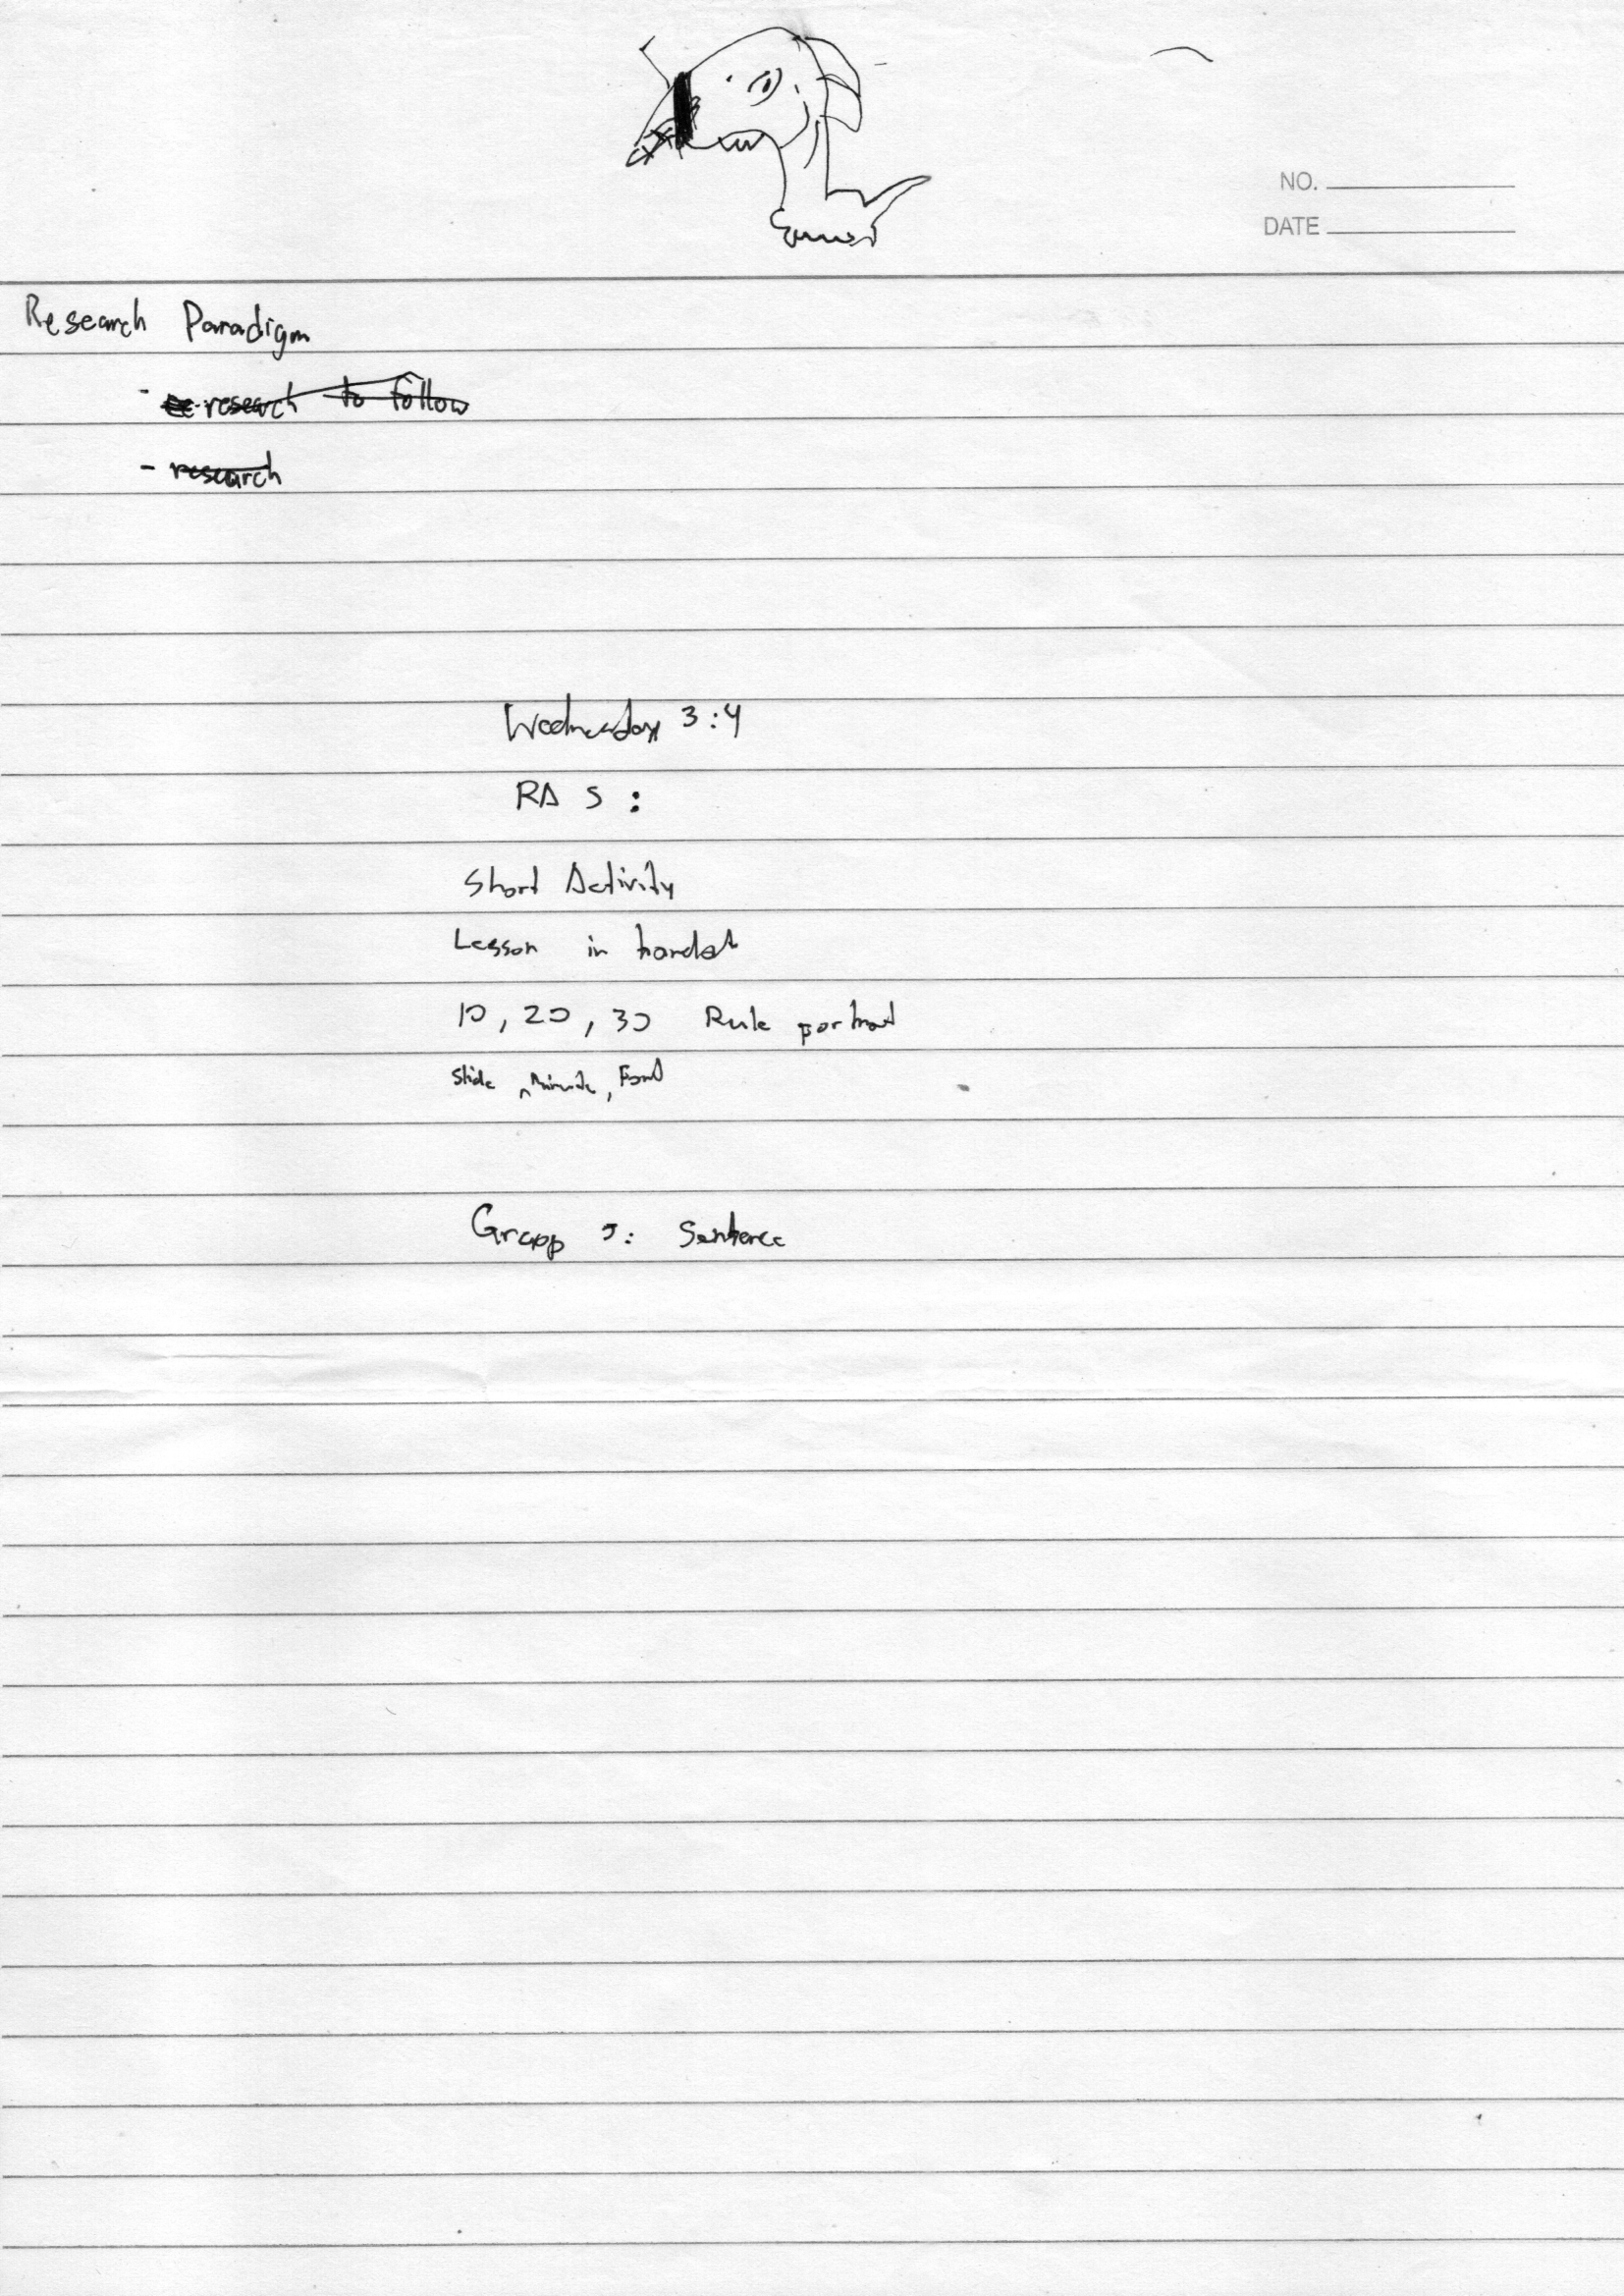 NO.
DATE
Research Paradigm
- research to follow
- research
Wednesday 3:4
RA 5 :
Short Activity
Lesson in
10, 20, 30 Rule
Slide, Minute, Font
Group 5: Sentence